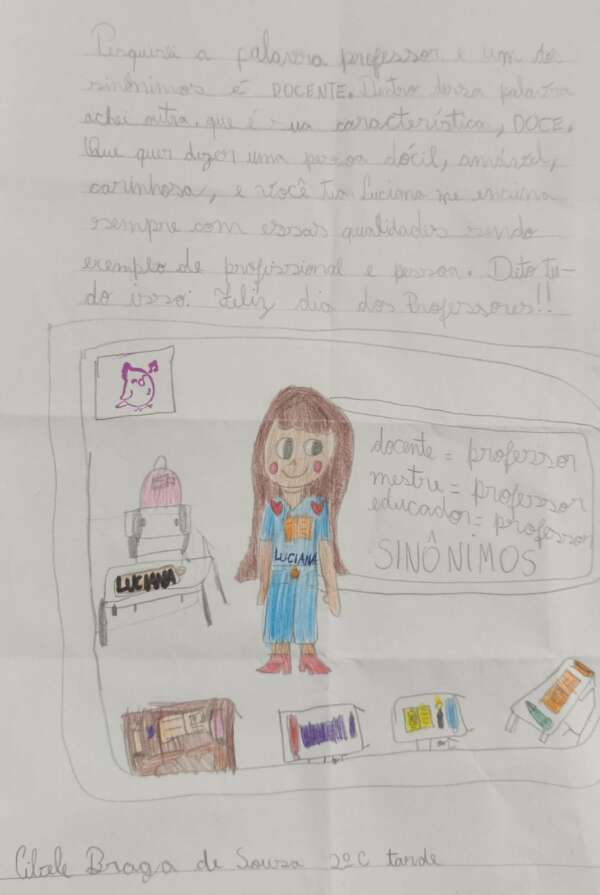 Pesquisei a palavra professor e um dos
sinônimos é DOCENTE. Dentro dessa palavra
achei outra que é sua característica, DOCE.
Que quer dizer uma pessoa dócil, amável,
carinhosa, e você tia Luciana me ensina
sempre com essas qualidades sendo
exemplo de profissional e pessoa. Dito tu-
do isso: Feliz dia dos Professores!!
docente = professor
mestre = professor
educador = professor
SINÔNIMOS
LUCIANA
LUCIANA
Cibele Braga de Souza 2º C tarde